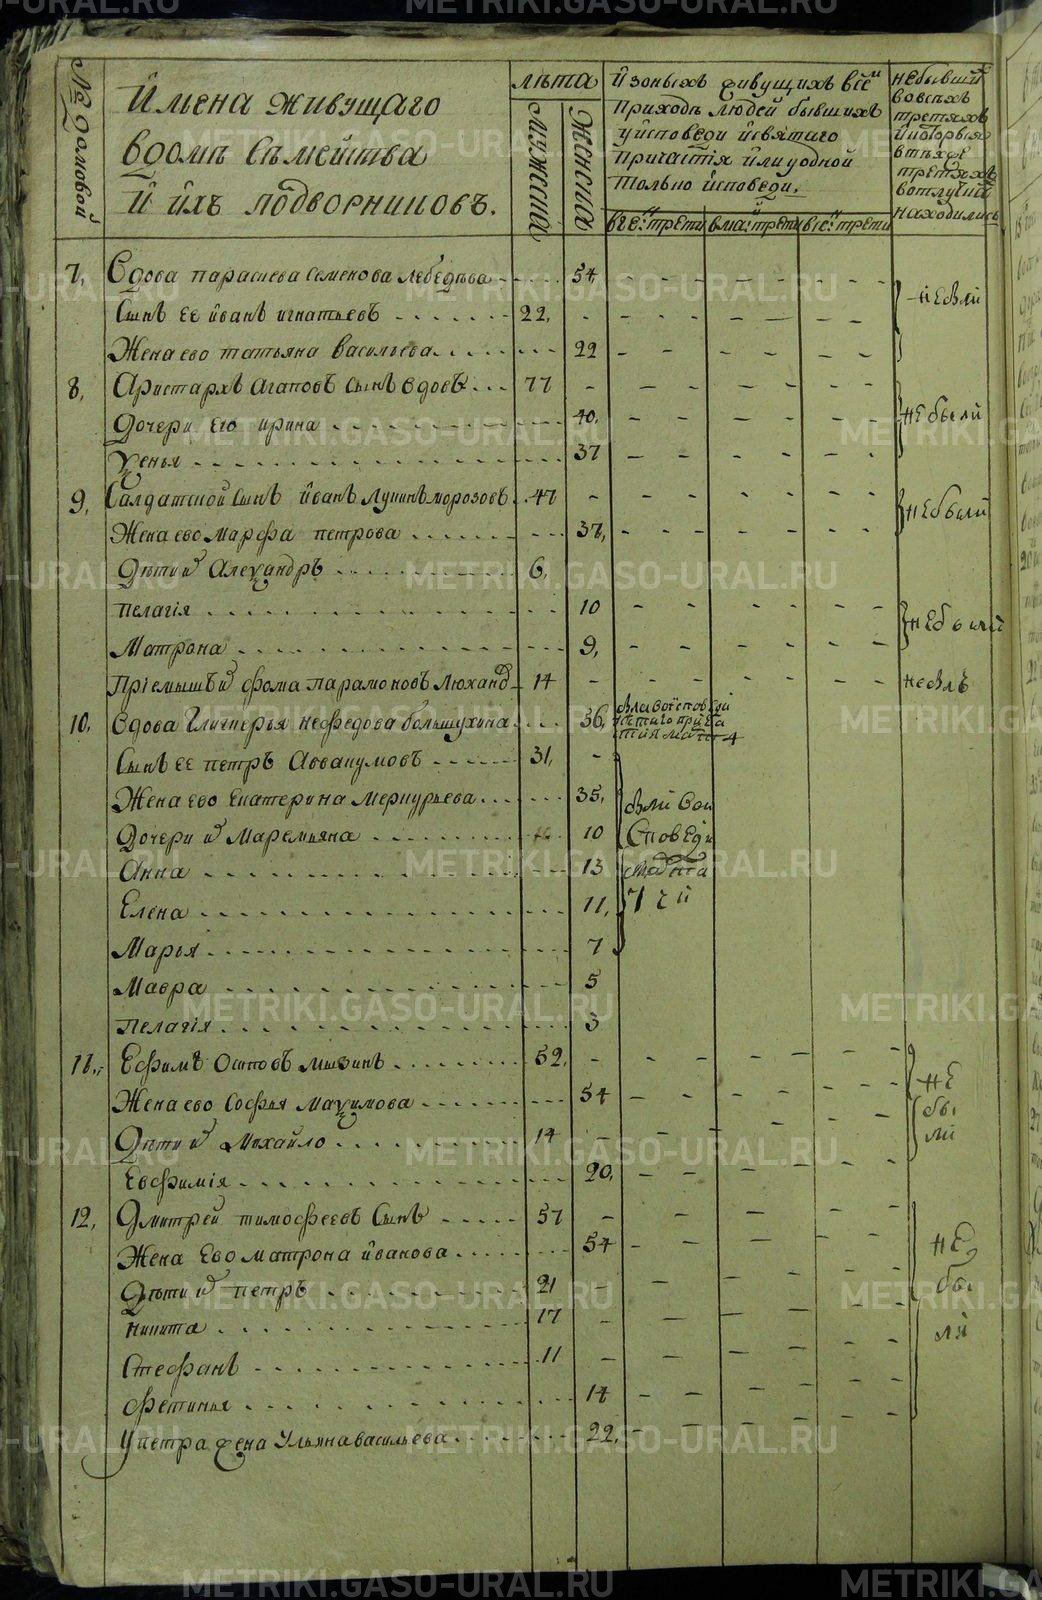 METRIKI.GASO-URAL.RU
№ Домовой
Имена живущаго
вдомѣ Семейства
И ихъ подворниковъ.
лѣта
мужска
Женска
Изоныхъ живущихъ всем
приходѣ людей бывшихъ
уисповеди исвятаго
причастія илиуодной
только исповеди.
небывшихъ
вовсѣхъ
третяхъ
икоторыя
втѣхже
третяхъ
вотлучки
находились
7, Вдова парасиева семенова лебедѣва - - - 54, - - - - - -
Сынъ ее иванъ игнатьевъ - - - 22, - - - - - - -
Жена ево татьяна васильева - - - 22 - - - - - -
8, Аристархъ агаповъ сынъ вдовъ - - - 77 - - - - - - -
Дочери его ирина - - - 40, - - - - - - небыли
Ксенья - - - 37 - - - - - -
9, Салдатской сынъ иванъ лукинъ морозовъ - - 47 - - - - - - - небыли
Жена ево марфа петрова - - - 37, - - - - - -
Дѣти и Александръ - - - 6,
пелагія - - - 10 - - - - - - небыли
Матрона - - - 9, - - - - - -
Пріемышъ и фома парамоновъ - 14 - - - - - - -
10, Вдова гликерья нефедова большухина - - - 36,
Сынъ ее петръ Аввакумовъ - - - 31, -
Жена ево Екатерина меркурьева - - - 35,
Дочери и Маремьяна - - - 10
Анна - - - 13
Елена - - - 11,
Марья - - - 7
Мавра - - - 5
пелагія - - - 3
11, Ефимъ осиповъ - - - 52, - - - - - - -
Жена ево Софья Максимова - - - 54 - - - - - -
Дѣти и Михайло - - - 14 - - - - - - -
Евфимія - - - 20, - - - - - -
не
бы
ли
12, Дмитрей тимофеевъ Сынъ - - - 57 - - - - - - -
Жена Ево матрона иванова - - - 54 - - - - - -
Дѣти и петръ - - - 21 - - - - - - -
никита - - - 17 - - - - - - -
Стефанъ - - - 11 - - - - - - -
Фетинья - - - 14 - - - - - -
У петра жена Ульяна васильева - - - 22, - - - - - -
не
бы
ли